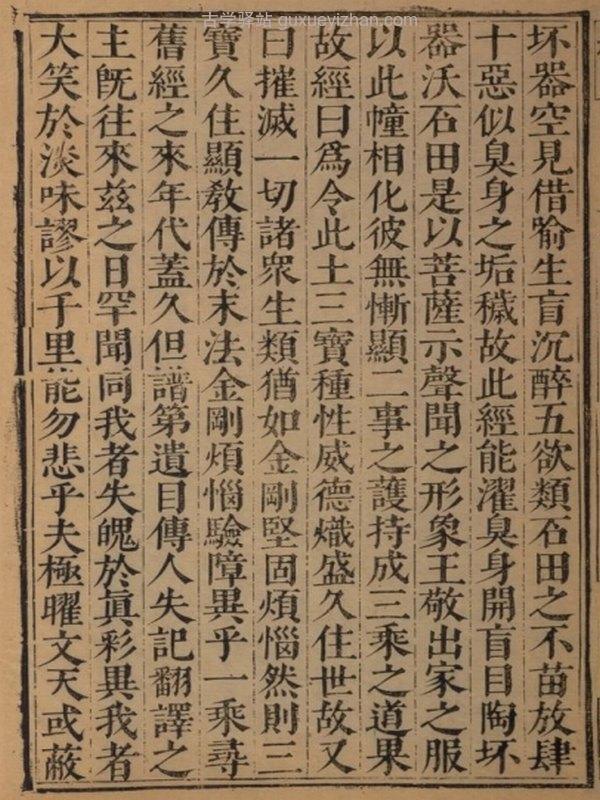 古学驿站 guxueyizhan.com
坏器空見借喻生盲沉醉五欲類石田之不苗放肆
十惡似臭身之垢穢故此經能濯臭身開盲目陶坏
器沃石田是以菩薩示聲聞之形象王敬出家之服
以此幢相化彼無慚顯二事之護持成三乘之道果
故經曰爲令此土三寶種性威德熾盛久住世故又
曰摧滅一切諸衆生類猶如金剛堅固煩惱然則三
寶久住顯教傳於末法金剛煩惱驗障異乎一乘尋
舊經之來年代蓋久但譜第遺目傳人失記翻譯之
主旣往來茲之日罕聞同我者失魄於眞彩異我者
大笑於淡味謬以千里能勿悲乎夫極曜文天或蔽